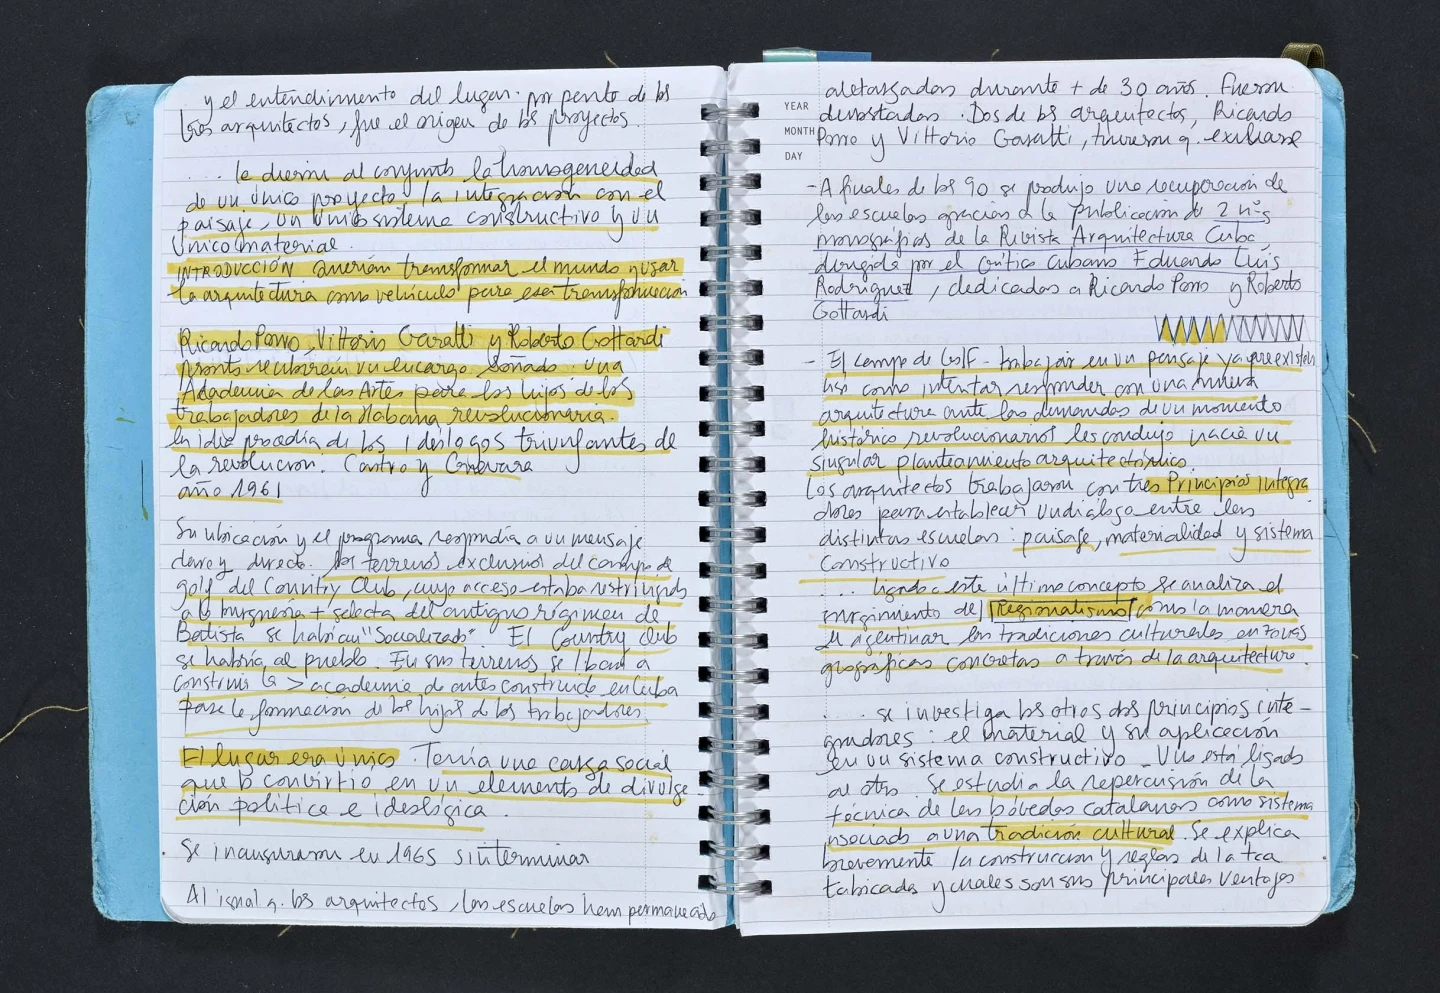 y el entendimiento del lugar. por parte de los
tres arquitectos, fue el origen de los proyectos.
.... le dieron al conjunto la homogeneidad
de un único proyecto: la integración con el
paisaje, un único sistema constructivo y un
único material.
INTRODUCCIÓN querían transformar el mundo y usar
la arquitectura como vehículo para esa transformación
Ricardo Porro, Vittorio Garatti y Roberto Gottardi
pronto recibirían un encargo soñado: una
Academia de las Artes para los hijos de los
trabajadores de la Habana revolucionaria.
la idea procedía de los ideólogos triunfantes de
la revolución. Castro y Guevara
año 1961
Su ubicación y el programa respondía a un mensaje
claro y directo. los terrenos exclusivos del campo de
golf del Country Club, cuyo acceso estaba restringido
a la burguesía + selecta del antiguo régimen de
Batista se habían "Socializado". El Country club
se habría al pueblo. En sus terrenos se iban a
construir la > academia de artes construida en Cuba
para la formación de los hijos de los trabajadores.
El lugar era único. Tenía una carga social
que lo convirtió en un elemento de divulga
ción política e ideológica.
Se inauguraron en 1965 sin terminar
Al igual q. los arquitectos, las escuelas han permanecido
YEAR
MONTH
DAY
aletargadas durante + de 30 años. Fueron
denostadas. Dos de los arquitectos, Ricardo
Porro y Vittorio Garatti, tuvieron q. exiliarse
- A finales de los 90 se produjo una recuperación de
las escuelas gracias a la publicación de 2 nºs
monográficos de la Revista Arquitectura Cuba
dirigida por el crítico cubano Eduardo Luís
Rodríguez, dedicadas a Ricardo Porro y Roberto
Gottardi
- El campo de Golf - trabajar en un paisaje ya preexisten
así como intentar responder con una nueva
arquitectura ante las demandas de un momento
histórico revolucionario les condujo hacia un
singular planteamiento arquitectónico.
Los arquitectos trabajaron con tres Principios integra
dores para establecer un diálogo entre las
distintas escuelas: paisaje, materialidad y sistema
constructivo
... ligado a este último concepto se analiza el
surgimiento del Regionalismo como la manera
de agentinar las tradiciones culturales en zonas
geográficas concretas a través de la arquitectura.
... se investiga los otros dos principios inte-
gradores: el material y su aplicación
en un sistema constructivo - Uno está ligado
al otro. Se estudia la repercusión de la
técnica de las bóvedas catalanas como sistema
asociado a una tradición cultural. Se explica
brevemente la construcción y reglas de la tca
tabicada y cuales son sus principales ventajas